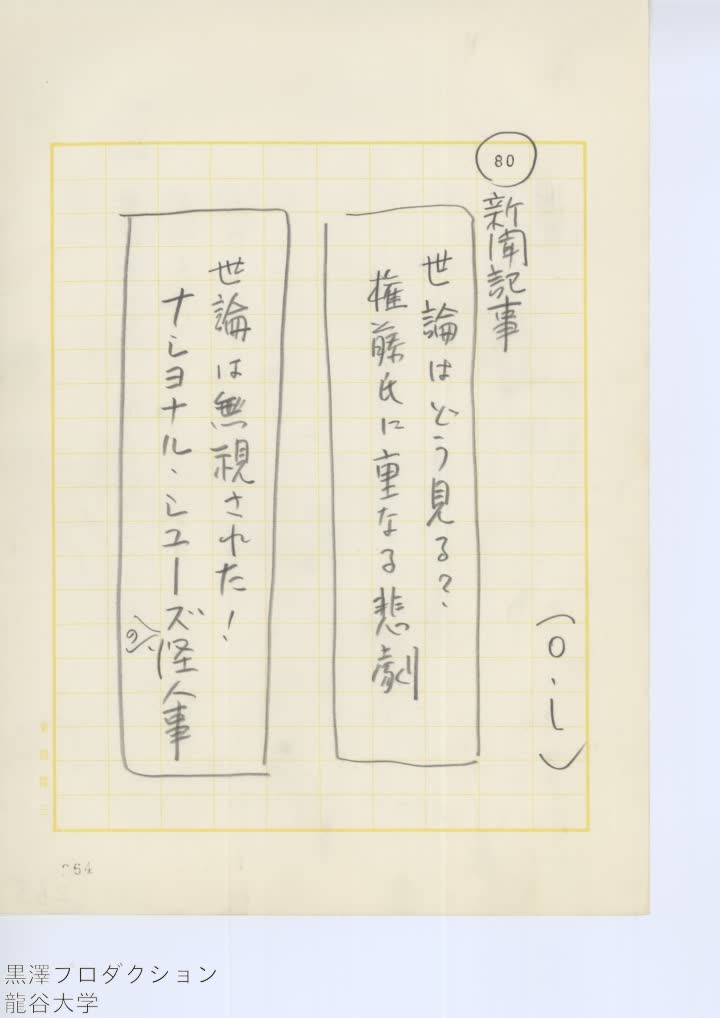 80
新聞記事
(O・L)
世論はどう見る?
権藤氏に重なる悲劇
世論は無視された!
ナショナル・シューズの怪人事
黒澤プロダクション
龍谷大学